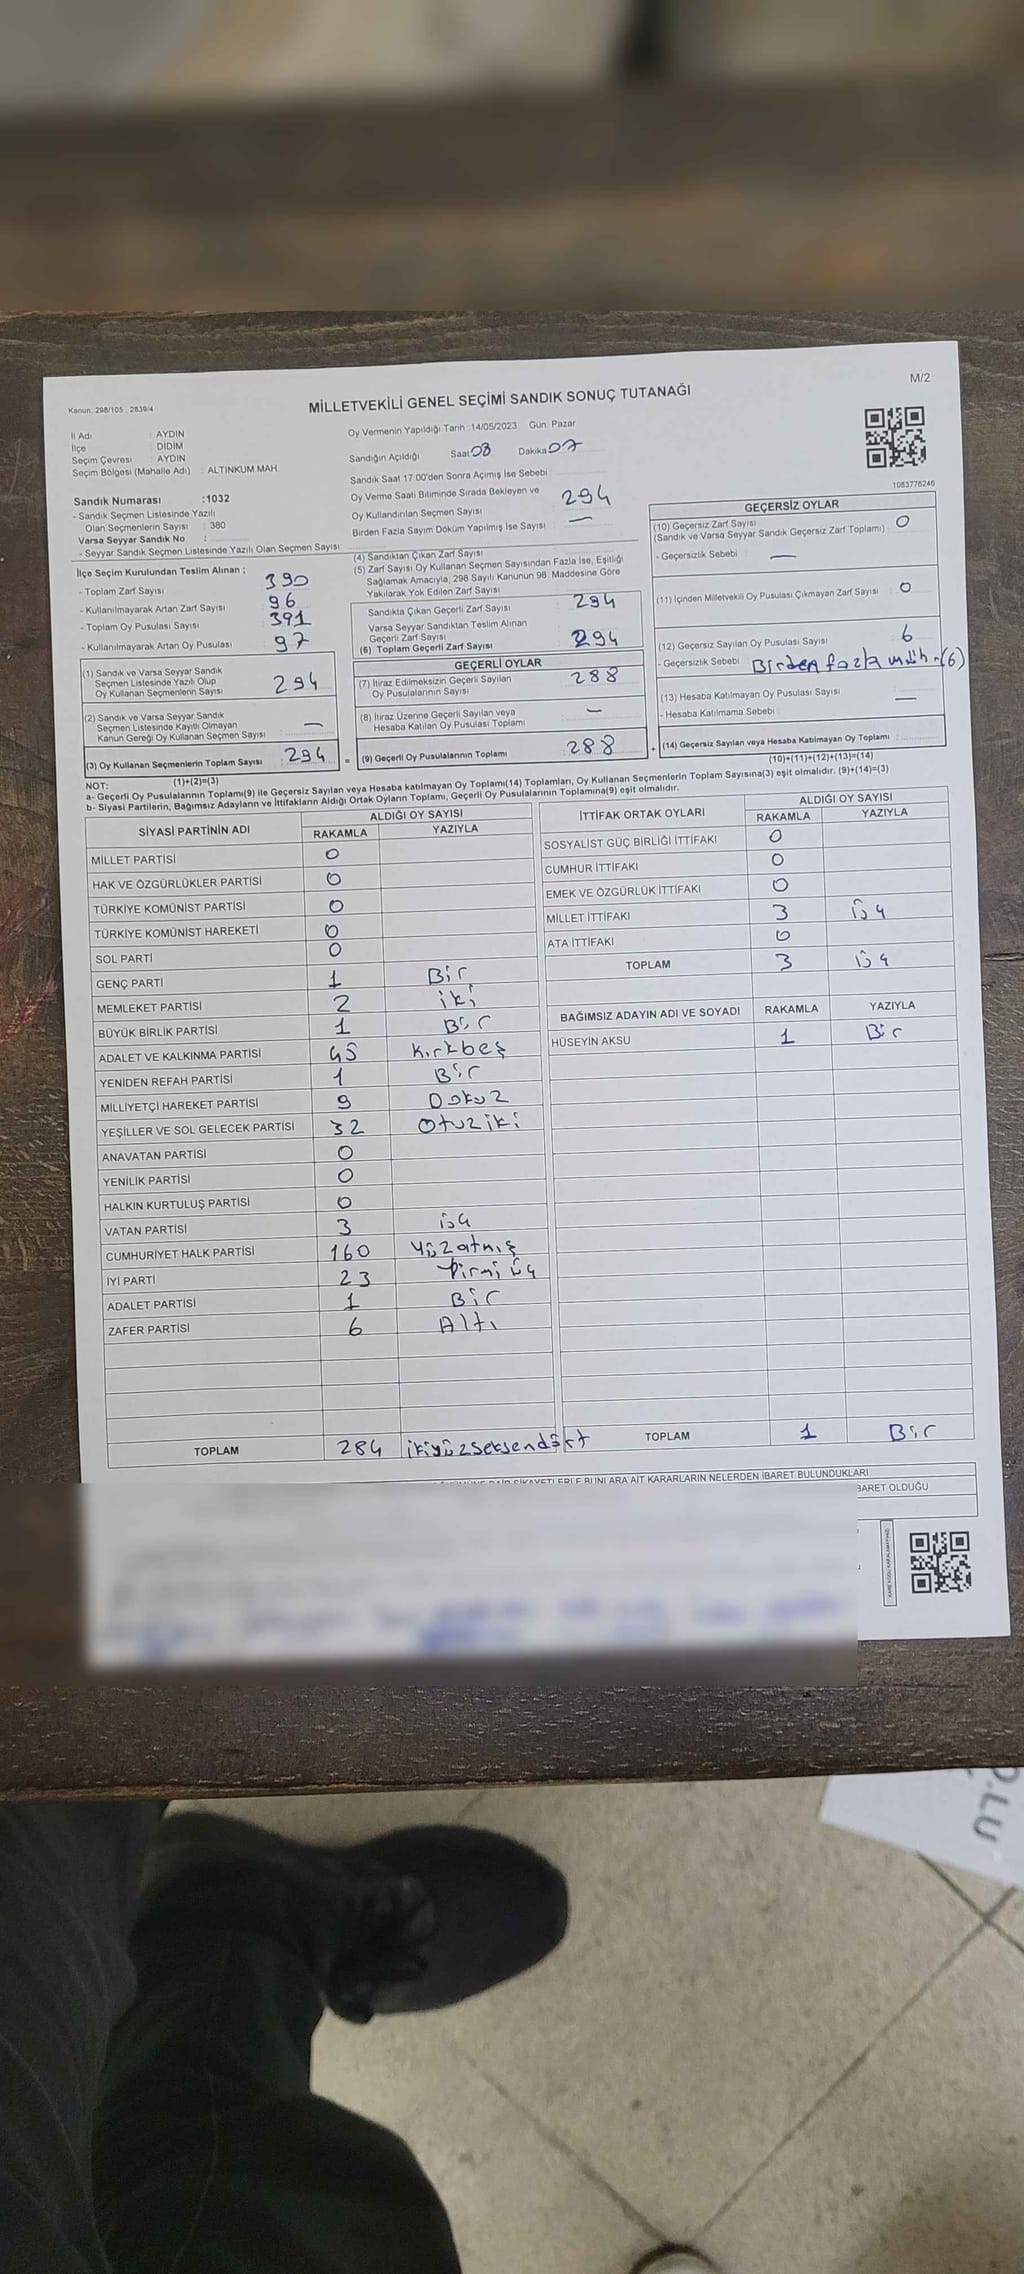 M/2
Kanun: 298/105 , 2839/4
MİLLETVEKİLİ GENEL SEÇİMİ SANDIK SONUÇ TUTANAĞI
İl Adı : AYDIN
İlçe : DİDİM
Seçim Çevresi : AYDIN
Seçim Bölgesi (Mahalle Adı) : ALTINKUM MAH.
Oy Vermenin Yapıldığı Tarih :14/05/2023 Gün: Pazar
Sandığın Açıldığı Saat 08 Dakika 07
Sandık Saat 17:00'den Sonra Açımış İse Sebebi :
Oy Verme Saati Bitiminde Sırada Bekleyen ve
Oy Kullandırılan Seçmen Sayısı 294
Birden Fazla Sayım Döküm Yapılmış İse Sayısı —
1083776246
Sandık Numarası :1032
- Sandık Seçmen Listesinde Yazılı
Olan Seçmenlerin Sayısı : 380
Varsa Seyyar Sandık No :
- Seyyar Sandık Seçmen Listesinde Yazılı Olan Seçmen Sayısı
İlçe Seçim Kurulundan Teslim Alınan ;
- Toplam Zarf Sayısı 390
- Kullanılmayarak Artan Zarf Sayısı 96
- Toplam Oy Pusulası Sayısı 391
- Kullanılmayarak Artan Oy Pusulası 97
(1) Sandık ve Varsa Seyyar Sandık
Seçmen Listesinde Yazılı Olup
Oy Kullanan Seçmenlerin Sayısı 294
(2) Sandık ve Varsa Seyyar Sandık
Seçmen Listesinde Kayıtlı Olmayan
Kanun Gereği Oy Kullanan Seçmen Sayısı : —
(3) Oy Kullanan Seçmenlerin Toplam Sayısı : 294
(1)+(2)=(3)
(4) Sandıktan Çıkan Zarf Sayısı
(5) Zarf Sayısı Oy Kullanan Seçmen Sayısından Fazla İse, Eşitliği
Sağlamak Amacıyla, 298 Sayılı Kanunun 98. Maddesine Göre
Yakılarak Yok Edilen Zarf Sayısı
Sandıkta Çıkan Geçerli Zarf Sayısı 294
Varsa Seyyar Sandıktan Teslim Alınan
Geçerli Zarf Sayısı
(6) Toplam Geçerli Zarf Sayısı 294
GEÇERLİ OYLAR
(7) İtiraz Edilmeksizin Geçerli Sayılan
Oy Pusulalarının Sayısı 288
(8) İtiraz Üzerine Geçerli Sayılan veya
Hesaba Katılan Oy Pusulası Toplamı —
= (9) Geçerli Oy Pusulalarının Toplamı 288 +
GEÇERSİZ OYLAR
(10) Geçersiz Zarf Sayısı
(Sandık ve Varsa Seyyar Sandık Geçersiz Zarf Toplamı) : 0
- Geçersizlik Sebebi : —
(11) İçinden Milletvekili Oy Pusulası Çıkmayan Zarf Sayısı : 0
(12) Geçersiz Sayılan Oy Pusulası Sayısı 6
- Geçersizlik Sebebi : Birden fazla müh. (6)
(13) Hesaba Katılmayan Oy Pusulası Sayısı —
- Hesaba Katılmama Sebebi
(14) Geçersiz Sayılan veya Hesaba Katılmayan Oy Toplamı :
(10)+(11)+(12)+(13)=(14)
NOT:
a- Geçerli Oy Pusulalarının Toplamı(9) ile Geçersiz Sayılan veya Hesaba katılmayan Oy Toplamı(14) Toplamları, Oy Kullanan Seçmenlerin Toplam Sayısına(3) eşit olmalıdır. (9)+(14)=(3)
b- Siyasi Partilerin, Bağımsız Adayların ve İttifakların Aldığı Ortak Oyların Toplamı, Geçerli Oy Pusulalarının Toplamına(9) eşit olmalıdır.
SİYASİ PARTİNİN ADI ALDIĞI OY SAYISI
RAKAMLA YAZIYLA
MİLLET PARTİSİ 0
HAK VE ÖZGÜRLÜKLER PARTİSİ 0
TÜRKİYE KOMÜNİST PARTİSİ 0
TÜRKİYE KOMÜNİST HAREKETİ 0
SOL PARTİ 0
GENÇ PARTİ 1 Bir
MEMLEKET PARTİSİ 2 iki
BÜYÜK BİRLİK PARTİSİ 1 Bir
ADALET VE KALKINMA PARTİSİ 45 kırkbeş
YENİDEN REFAH PARTİSİ 1 Bir
MİLLİYETÇİ HAREKET PARTİSİ 9 Dokuz
YEŞİLLER VE SOL GELECEK PARTİSİ 32 Otuziki
ANAVATAN PARTİSİ 0
YENİLİK PARTİSİ 0
HALKIN KURTULUŞ PARTİSİ 0
VATAN PARTİSİ 3 üç
CUMHURİYET HALK PARTİSİ 160 Yüzatmış
İYİ PARTİ 23 Yirmi üç
ADALET PARTİSİ 1 Bir
ZAFER PARTİSİ 6 Altı
TOPLAM 284 ikiyüzseksendört
İTTİFAK ORTAK OYLARI ALDIĞI OY SAYISI
RAKAMLA YAZIYLA
SOSYALİST GÜÇ BİRLİĞİ İTTİFAKI 0
CUMHUR İTTİFAKI 0
EMEK VE ÖZGÜRLÜK İTTİFAKI 0
MİLLET İTTİFAKI 3 üç
ATA İTTİFAKI 0
TOPLAM 3 üç
BAĞIMSIZ ADAYIN ADI VE SOYADI RAKAMLA YAZIYLA
HÜSEYİN AKSU 1 Bir
TOPLAM 1 Bir
ŞİKAYETLERLE BUNLARA AİT KARARLARIN NELERDEN İBARET BULUNDUKLARI
BARET OLDUĞU